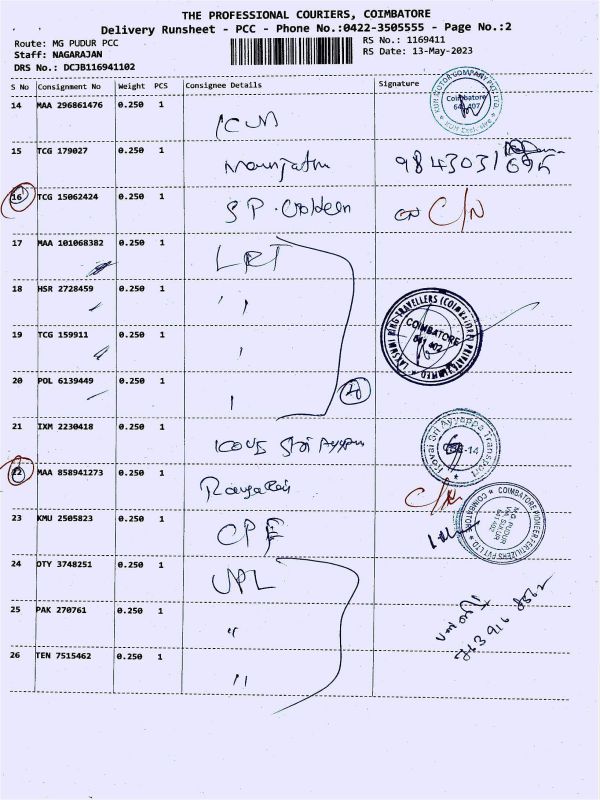 THE PROFESSIONAL COURIERS, COIMBATORE
Delivery Runsheet - PCC - Phone No.:0422-3505555 - Page No.:2
Route: MG PUDUR PCC
RS No.: 1169411
Staff: NAGARAJAN
RS Date: 13-May-2023
DRS No.: DCJB116941102
S No Consignment No Weight PCS Consignee Details Signature
14 MAA 296861476 0.250 1
Coimbatore
641 407
ICM
15 TCG 179027 0.250 1
16 TCG 15062424 0.250 1 SP. C/N
17 MAA 101068382 0.250 1 LRT
18 HSR 2728459 0.250 1 ''
COIMBATORE
641 402
19 TCG 159911 0.250 1 '
20 POL 6139449 0.250 1 '
21 IXM 2230418 0.250 1 Sri
Kovai Sri Ayyappa Transport
22 MAA 858941273 0.250 1 C/N
23 KMU 2505823 0.250 1 CPF
COIMBATORE PIONEER FERTILIZERS PVT LTD
MG PUDUR
24 OTY 3748251 0.250 1 UPL
25 PAK 270761 0.250 1 "
26 TEN 7515462 0.250 1 "